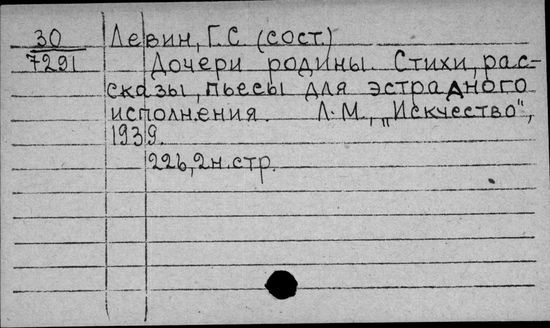 30 Левин, Г.С (сост)
7291 Дочери родины. Стихи, рас-
сказы, пьесы для эстрадного
исполнения. Л.М., „Искчество",
1939.
226, 2н.стр.